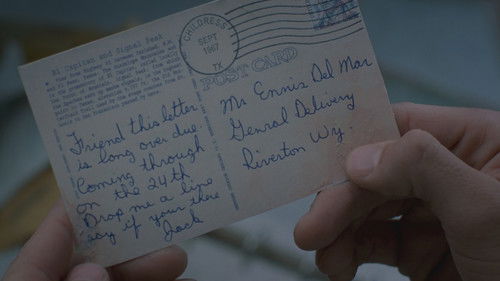 El Capitan and Signal Peak
Friend this letter
is long over due.
Coming through
on the 24th
Drop me a line
say if your there
Jack
CHILDRESS
SEPT
1967
TX
POST CARD
Mr Ennis Del Mar
Genral Delivery
Riverton Wy.